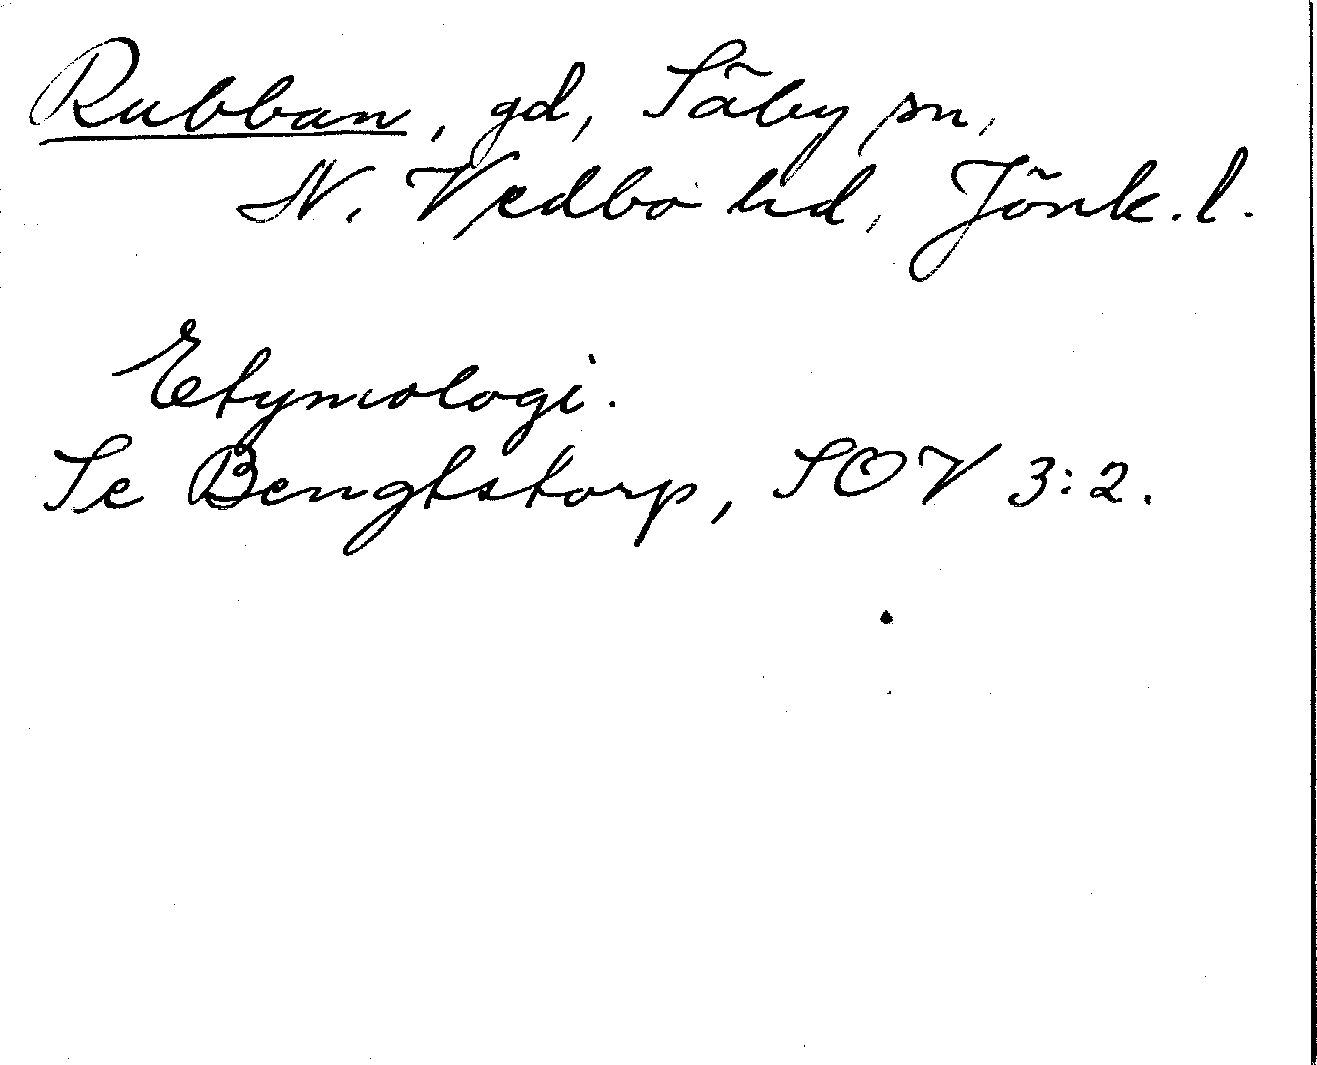 Rubban, gd, Säby sn,
N. Vedbo hd, Jönk. l.
Etymologi.
Se Bengtstorp, SOV 3:2.